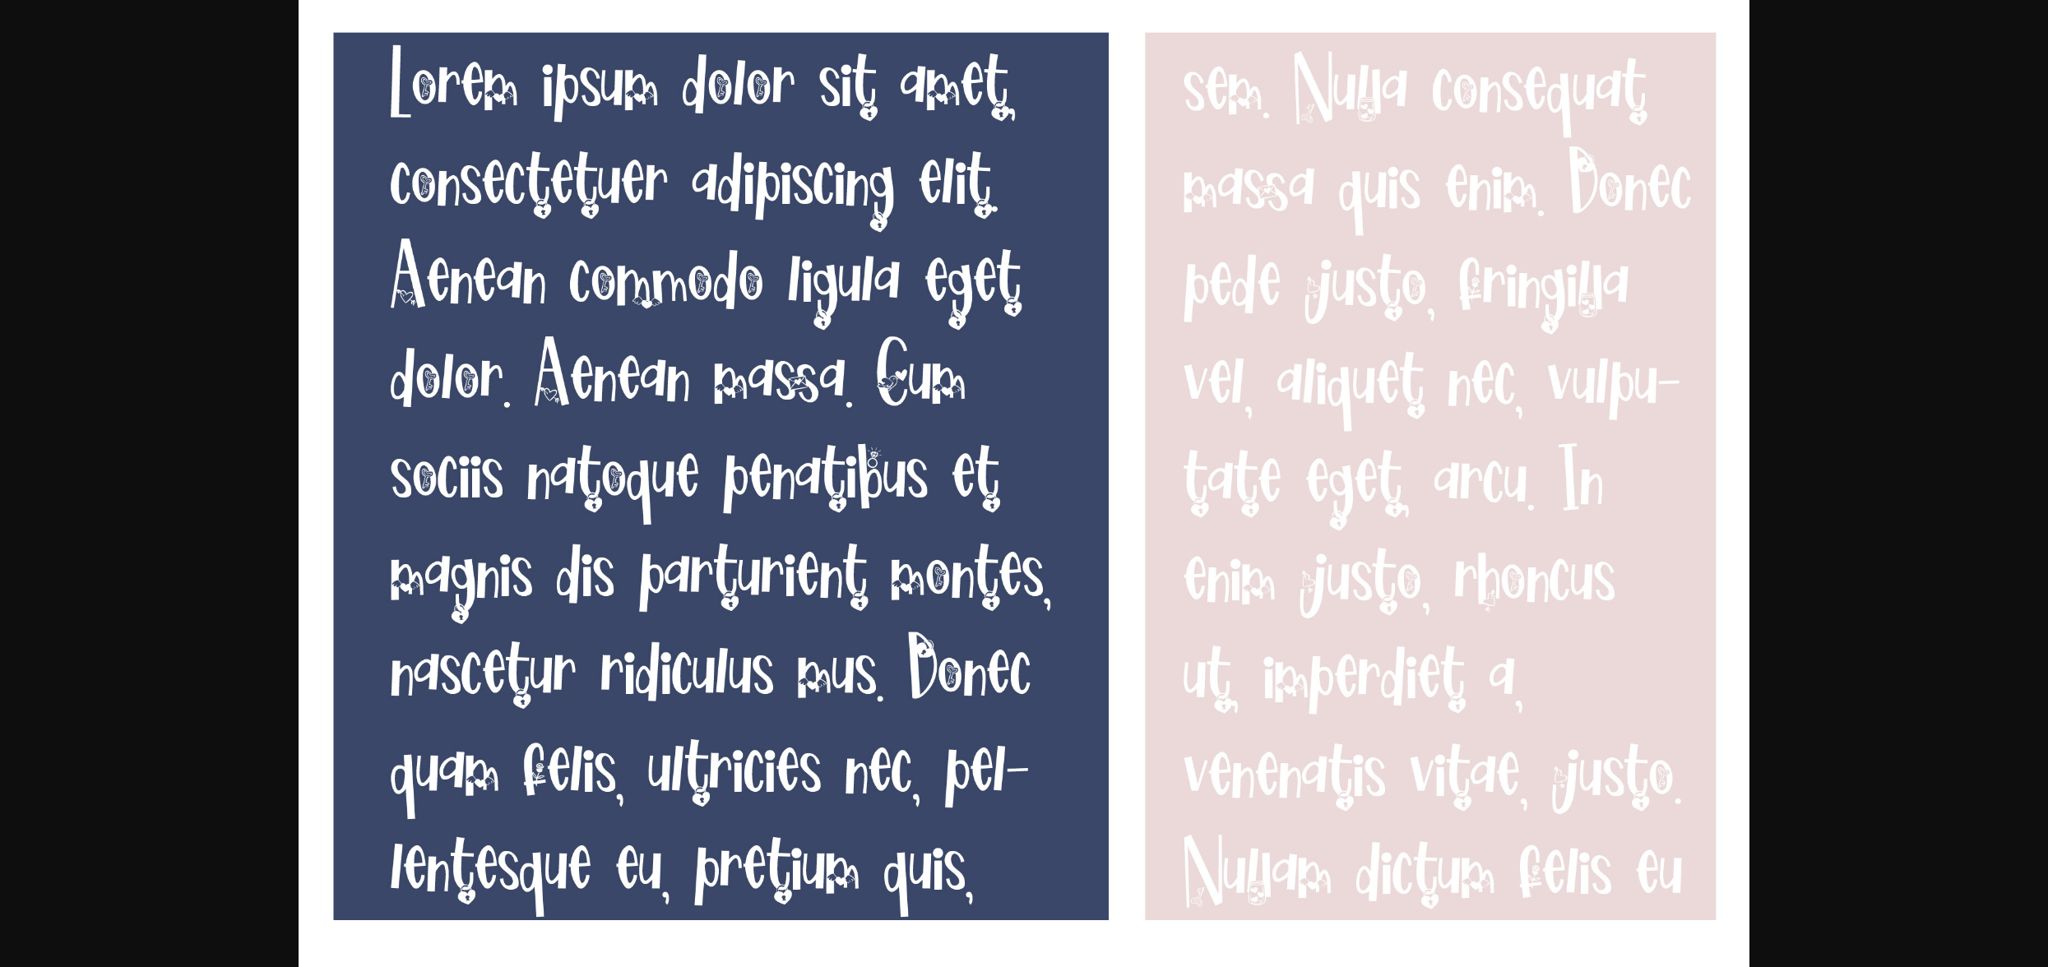 Lorem ipsum dolor sit amet,
consectetuer adipiscing elit.
Aenean commodo ligula eget
dolor. Aenean massa. Cum
sociis natoque penatibus et
magnis dis parturient montes,
nascetur ridiculus mus. Donec
quam felis, ultricies nec, pel-
lentesque eu, pretium quis,
sem. Nulla consequat
massa quis enim. Donec
pede justo, fringilla
vel, aliquet nec, vulpu-
tate eget, arcu. In
enim justo, rhoncus
ut, imperdiet a,
venenatis vitae, justo.
Nullam dictum felis eu